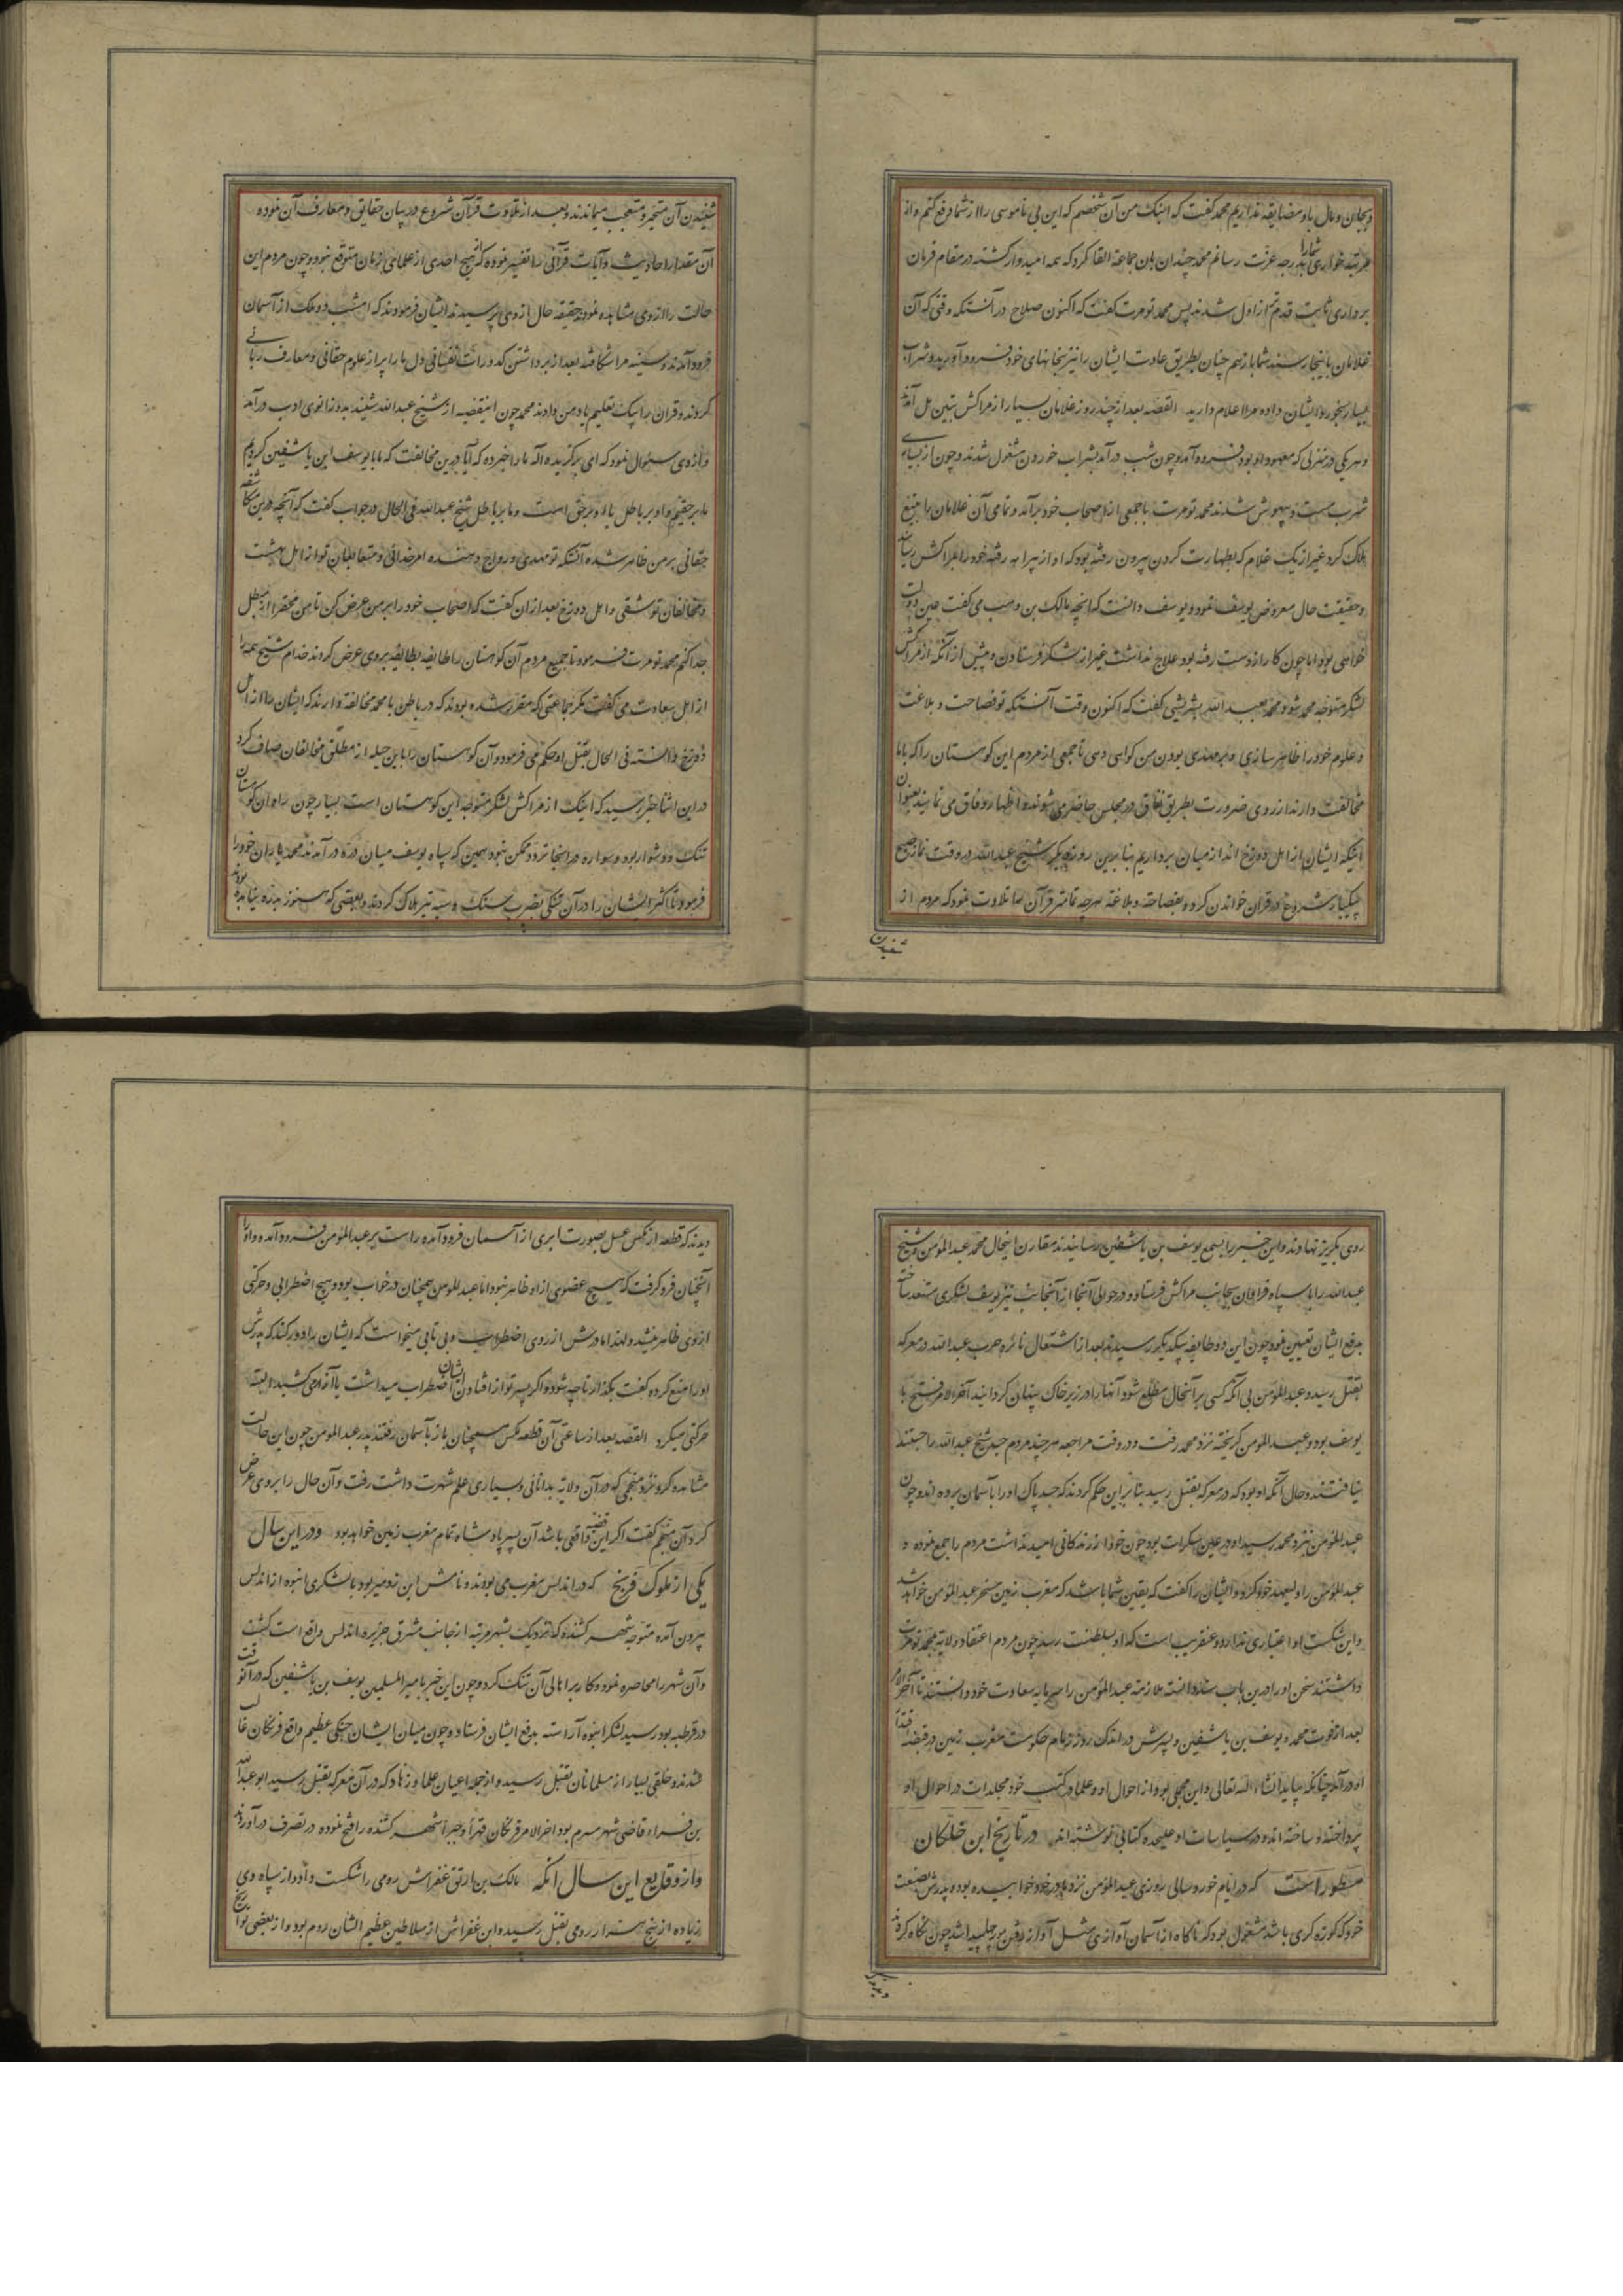 و بجان و مال با او مضایقه نداریم محمد گفت که اینک من آن شخصم که این بی ناموسی را از شما رفع کنم و از
مرتبه خواری شما را بدرجه عزت رسانم محمد چندان بان جماعه القا کرد که همه امیدوار گشته در مقام فرمان
برداری ثابت قدم تر از اول شدند پس محمد تومرت گفت که اکنون صلاح در آنستکه وقتی که آن
غلامان باینجا رسند شما بازهم چنان بطریق عادت ایشان را نیز بخانهای خود فرود آورید و شراب
بسیار بخورد ایشان داده مرا اعلام دارید القصه بعد از چند روز غلامان بسیار از مراکش بتین مل آمدند
و هر یکی در منزلی که معهود او بود فرود آمد و چون شب درآمد بشراب خوردن مشغول شدند و چون از بسیاری
شرب مست و بیهوش شدند محمد تومرت با جمعی از اصحاب خود برآمد و تمامی آن غلامان را بتیغ
هلاک کرد غیر از یک غلام که بطهارت کردن بیرون رفته بود که او از بیراهه رفته خود را بمراکش رسانید
و حقیقت حال معروض یوسف نمود و یوسف دانست که انچه مالک بن وهب می گفت عین دولت
خواهی بود اما چون کار از دست رفته بود علاج نداشت غیر از لشکر فرستادن و پیش از آنکه از مراکش
لشکر متوجه محمد شود محمد بعبد الله بشریشی گفت که اکنون وقت آنستکه تو فصاحت و بلاغت
و علوم خود را ظاهر سازی و بر مهدی بودن من گواهی دهی تا جمعی از مردم این کوهستان را که باما
مخالفت دارند از روی ضرورت بطریق نفاق در مجلس حاضر می شوند و اظهار وفاق می نمایند بعنوان
اینکه ایشان از اهل دوزخ اند از میان برداریم بنابرین روز دیگر شیخ عبد الله در وقت نماز صبح
بیکبار شروع در قرآن خواندن کرد و بفصاحته و بلاغته هرچه تمامتر قرآن را تلاوت نمود که مردم از
شنیدن
شنیدن آن متحیر و متعجب میماندند و بعد از تلاوت قرآن شروع در بیان حقایق و معارف آن نموده
آن مقدار احادیث و آیات قرآنی را تفسیر فرموده که از هیچ احدی از علمای زمان متوقع نبود و چون مردم این
حالت را از وی مشاهده نمودند حقیقه حال از وی پرسیدند ایشان فرمودند که امشب دو ملک از آسمان
فرود آمدند و سینه مرا شکافته بعد از برداشتن کدورات نفسانی دل ما را پر از علوم حقانی و معارف ربانی
کردند و قرآن را بیک تعلیم یاد من دادند محمد چون اینقضیه از شیخ عبد الله شنید بدو زانوی ادب درآمد
و از وی سئوال نمود که ای برگزیده اله ما را خبر ده که آیا درین مخالفت که ما با یوسف ابن یاشفین کردیم
ما بر حقیم و او بر باطل یا او بر حق است و ما بر باطل شیخ عبد الله فی الحال در جواب گفت که آنچه درین مکاشفه
حقانی بر من ظاهر شده آنستکه تو مهدی و رواج دهنده امر خدائی و متعابعان تو از اهل بهشت
و مخالفان تو شقی و اهل دوزخ بعد از ان گفت که اصحاب خود را بر من عرض کن تا من محق را از مبطل
جدا کنم محمد تومرت فرمود تا جمیع مردم آن کوهستان را طایفه بطایفه بر وی عرض کردند خدام شیخ همه را
از اهل سعادت می گفت مگر جماعتی که مقرر شده بودند که در باطن با محمد مخالفته دارند که ایشان را از اهل
دوزخ دانسته فی الحال بقتل او حکم می فرمود و آن کوهستان را باین حیله از مطلق مخالفان صاف کرد
در این اثنا خبر رسید که اینک از مراکش لشکر متوجه این کوهستان است بسیار چون راه ان کوهستان
تنگ و دشوار بود و سواره در انجا تردد ممکن نبود همین که سپاه یوسف میان دره درآمدند محمد یاران خود را
فرمود تا اکثر ایشان را در آن تنگی بضرب سنگ و تیر هلاک کردند و بعضی که هنوز بدره نیامده بودند
روی بگریز نهادند و این خبر را بسمع یوسف بن یاشفین رسانیدند مقارن اینحال محمد عبد المؤمن و شیخ
عبد الله را با سپاه فراوان بجانب مراکش فرستاد و در حوالی آنجا از آنجانب نیز یوسف لشکری مستعد ساخته
بدفع ایشان تعیین نمود چون این دو طایفه بیکدیگر رسیدند بعد از اشتعال نائره حرب عبد الله در معرکه
بقتل رسید و عبد المؤمن بی آنکه کسی بر آنحال مطلع شود آنها را در زیر خاک پنهان گردانید آخر الامر فتح با
یوسف بود و عبد المومن گریخته نزد محمد رفت و در وقت مراجعه هر چند مردم جسد شیخ عبد الله را جستند
نیافتند و حال آنکه او بود که در معرکه بقتل رسید بنابراین حکم کردند که جسد پاک او را بآسمان برده اند و چون
عبد المؤمن نزد محمد رسید او در عین سکرات بود چون خود از زندگانی امید نداشت مردم را جمع نموده و
عبد المؤمن را ولیعهد خود کرد و ایشان را گفت که یقین شما باشد که مغرب زمین مسخر عبد المؤمن خواهد شد
و این شکست او اعتباری ندارد و عنقریب است که او بسلطنت رسد چون مردم اعتقاد ولایة بمحمد تومرت
داشتند سخن او را درین باب سند دانسته ملازمته عبد المؤمن را سرمایه سعادت خود دانستند تا آخر الامر
بعد از فوت محمد و یوسف بن یاشفین و پسرش در اندک روز زمام حکومت مغرب زمین در قبضه اقتدار
او درآمد چنانکه بیاید انشاء الله تعالی و این مجملی بود از احوال او و علما در کتب خود مجلدات در احوال او
پرداخته و ساخته اند و در سیاسات او علیحده کتابی نوشته اند در تاریخ ابن خلکان
مسطور است که در ایام خورد سالی روزی عبد المؤمن نزد پدر خود خوابیده بود و پدرش بصنعت
خود که کوزه گری باشد مشغول بود که ناگاه از آسمان آوازی مثل آواز رفتن مور چلپید اشد چون نگاه کردند
دیدند که
دیدند که قطعه از مگس عسل بصورت ابری از آسمان فرود آمده راست بر عبد المؤمن فرود آمده و او را
آنچنان فرو گرفت که هیچ عضوی از او ظاهر نبود اما عبد المومن همچنان در خواب بود و هیچ اضطرابی و حرکتی
از وی ظاهر نمیشد و لهذا مادرش از روی اضطراب و بی تابی میخواست که ایشان را دور کند که پدرش
او را منع کرده گفت بگذار تا چه شود و اگر پسر تو از افتادن ایشان اضطراب میداشت یا آزاری می کشید البته
حرکتی میکرد القصه بعد از ساعتی آن قطعه مگس همچنان باز بآسمان رفتند پدر عبد المومن چون این حالت
مشاهده کرد نزد منجمی که در آن ولایه بدانائی و بسیاری علم شهرت داشت رفت و آن حال را بروی عرض
کرد آن منجم گفت اگر این قضیه واقعی باشد آن پسر پادشاه تمام مغرب زمین خواهد بود و در این سال
یکی از ملوک فرنج که در اندلس مغرب می بودند و نامش ابن ردمیر بود با لشکری انبوه از اندلس
بیرون آمده متوجه شهر کننده که نزدیک بشهر مرتبه از جانب مشرق جزیره اندلس واقع است گشت
و آن شهر را محاصره نمود و کار بر اهالی آن تنگ کرد و چون این خبر بامیر المسلمین یوسف بن یاشفین که در آنوقت
در قرطبه بود رسید لشکر انبوه آراسته بدفع ایشان فرستاد و چون میان ایشان جنگی عظیم واقع فرنگان غالب
شدند و خلقی بسیار از مسلمانان بقتل رسید و از جمله اعیان علما و زهاد که در آن معرکه بقتل رسید ابو عبد الله
بن فراء قاضی شهر مریه بود اخر الامر فرنگان قهرا و جبرا شهر کننده را فتح نموده در تصرف درآوردند
و از وقایع این سال انکه بالک بن ارتق غفراش رومی را شکست داد و از سپاه وی
زیاده از پنج هزار رومی بقتل رسید و ابن غفراش از سلاطین عظیم الشان روم بود و از بعضی تواریخ